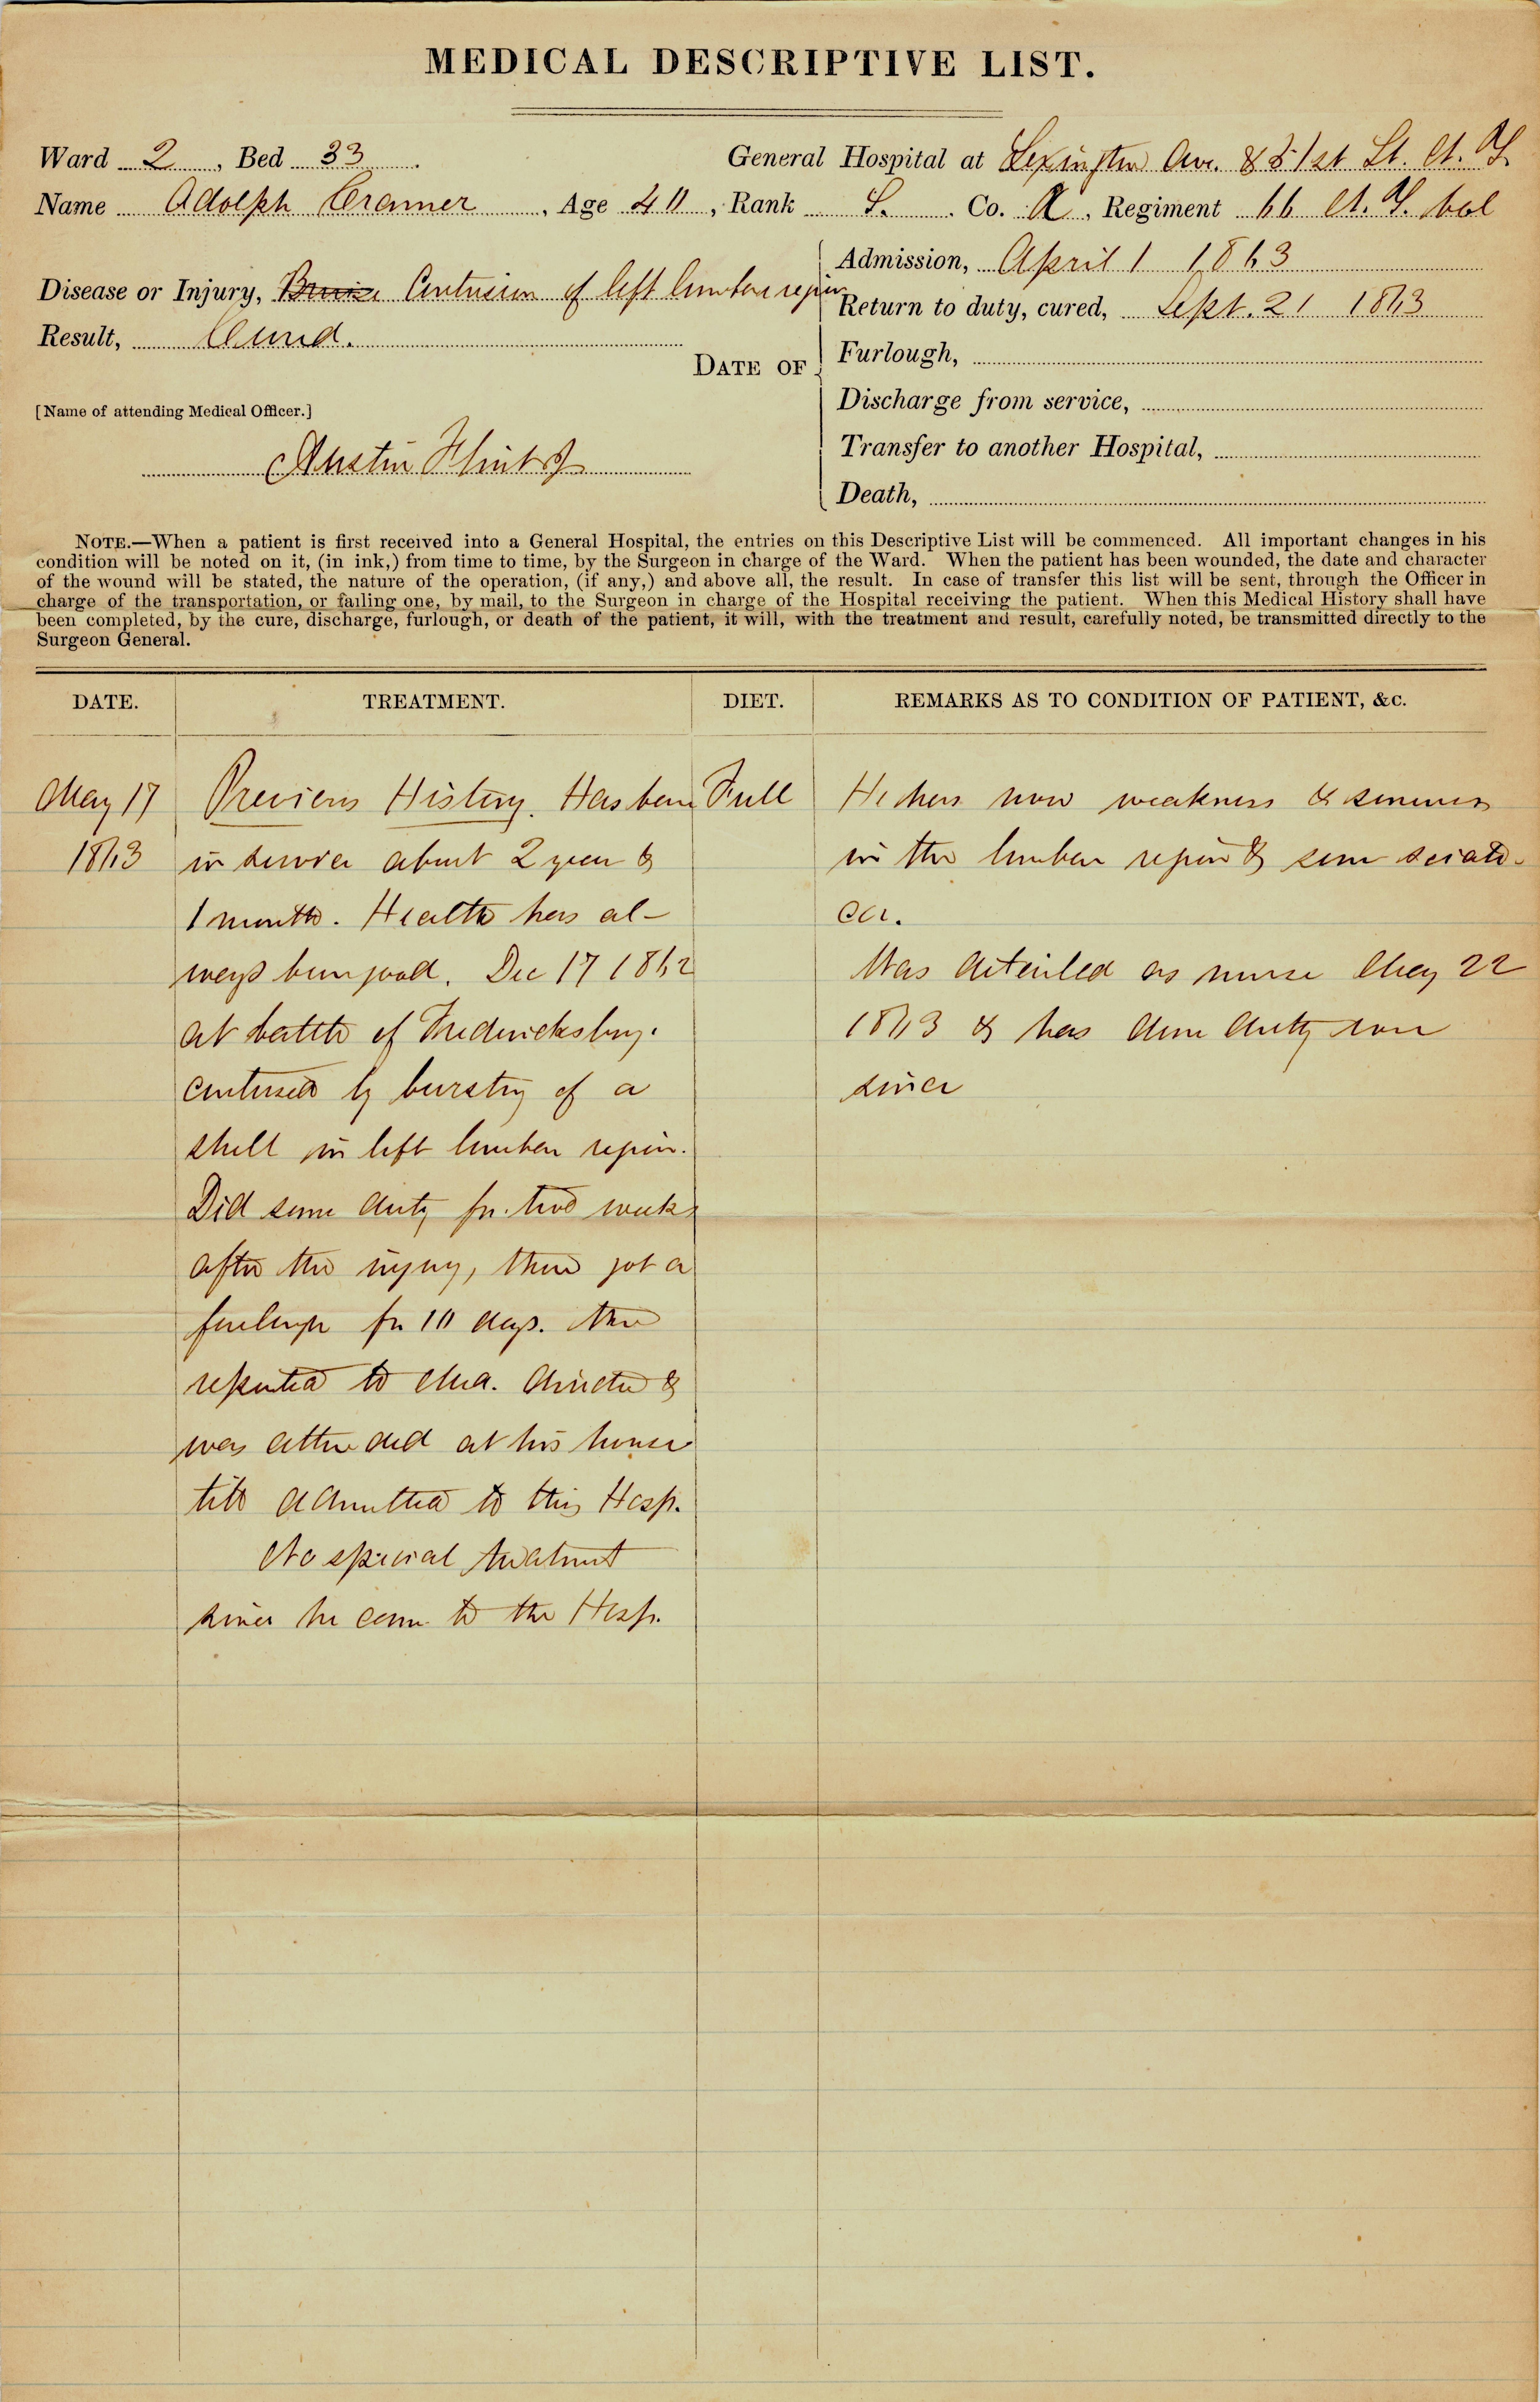 MEDICAL DESCRIPTIVE LIST.
Ward 2, Bed 33. General Hospital at Lexington Ave. & 51st St. N.Y.
Name Adolph Cramer, Age 40, Rank S. Co. A, Regiment 66 N.Y. Vol
Disease or Injury, Bruise Contusion of left lumbar region
Result, Cured.
[Name of attending Medical Officer.]
Austin Flint Jr
DATE OF
Admission, April 1 1863
Return to duty, cured, Sept. 21 1863
Furlough,
Discharge from service,
Transfer to another Hospital,
Death,
NOTE.—When a patient is first received into a General Hospital, the entries on this Descriptive List will be commenced. All important changes in his
condition will be noted on it, (in ink,) from time to time, by the Surgeon in charge of the Ward. When the patient has been wounded, the date and character
of the wound will be stated, the nature of the operation, (if any,) and above all, the result. In case of transfer this list will be sent, through the Officer in
charge of the transportation, or failing one, by mail, to the Surgeon in charge of the Hospital receiving the patient. When this Medical History shall have
been completed, by the cure, discharge, furlough, or death of the patient, it will, with the treatment and result, carefully noted, be transmitted directly to the
Surgeon General.
DATE. TREATMENT. DIET. REMARKS AS TO CONDITION OF PATIENT, &c.
May 17
1863
Previous History. Has been
in service about 2 years &
1 month. Health has al-
ways been good. Dec 17 1862
at battle of Fredericksburg.
contused by bursting of a
shell in left lumbar region.
Did some duty for two weeks
after the injury, then got a
furlough for 10 days. then
reported to Med. director &
was attended at his house
till admitted to this Hosp.
No special treatment
since he came to the Hosp.
Full
He has now weakness & soreness
in the lumbar region & some sciati-
ca.
Was detailed as nurse May 22
1863 & has done duty ever
since